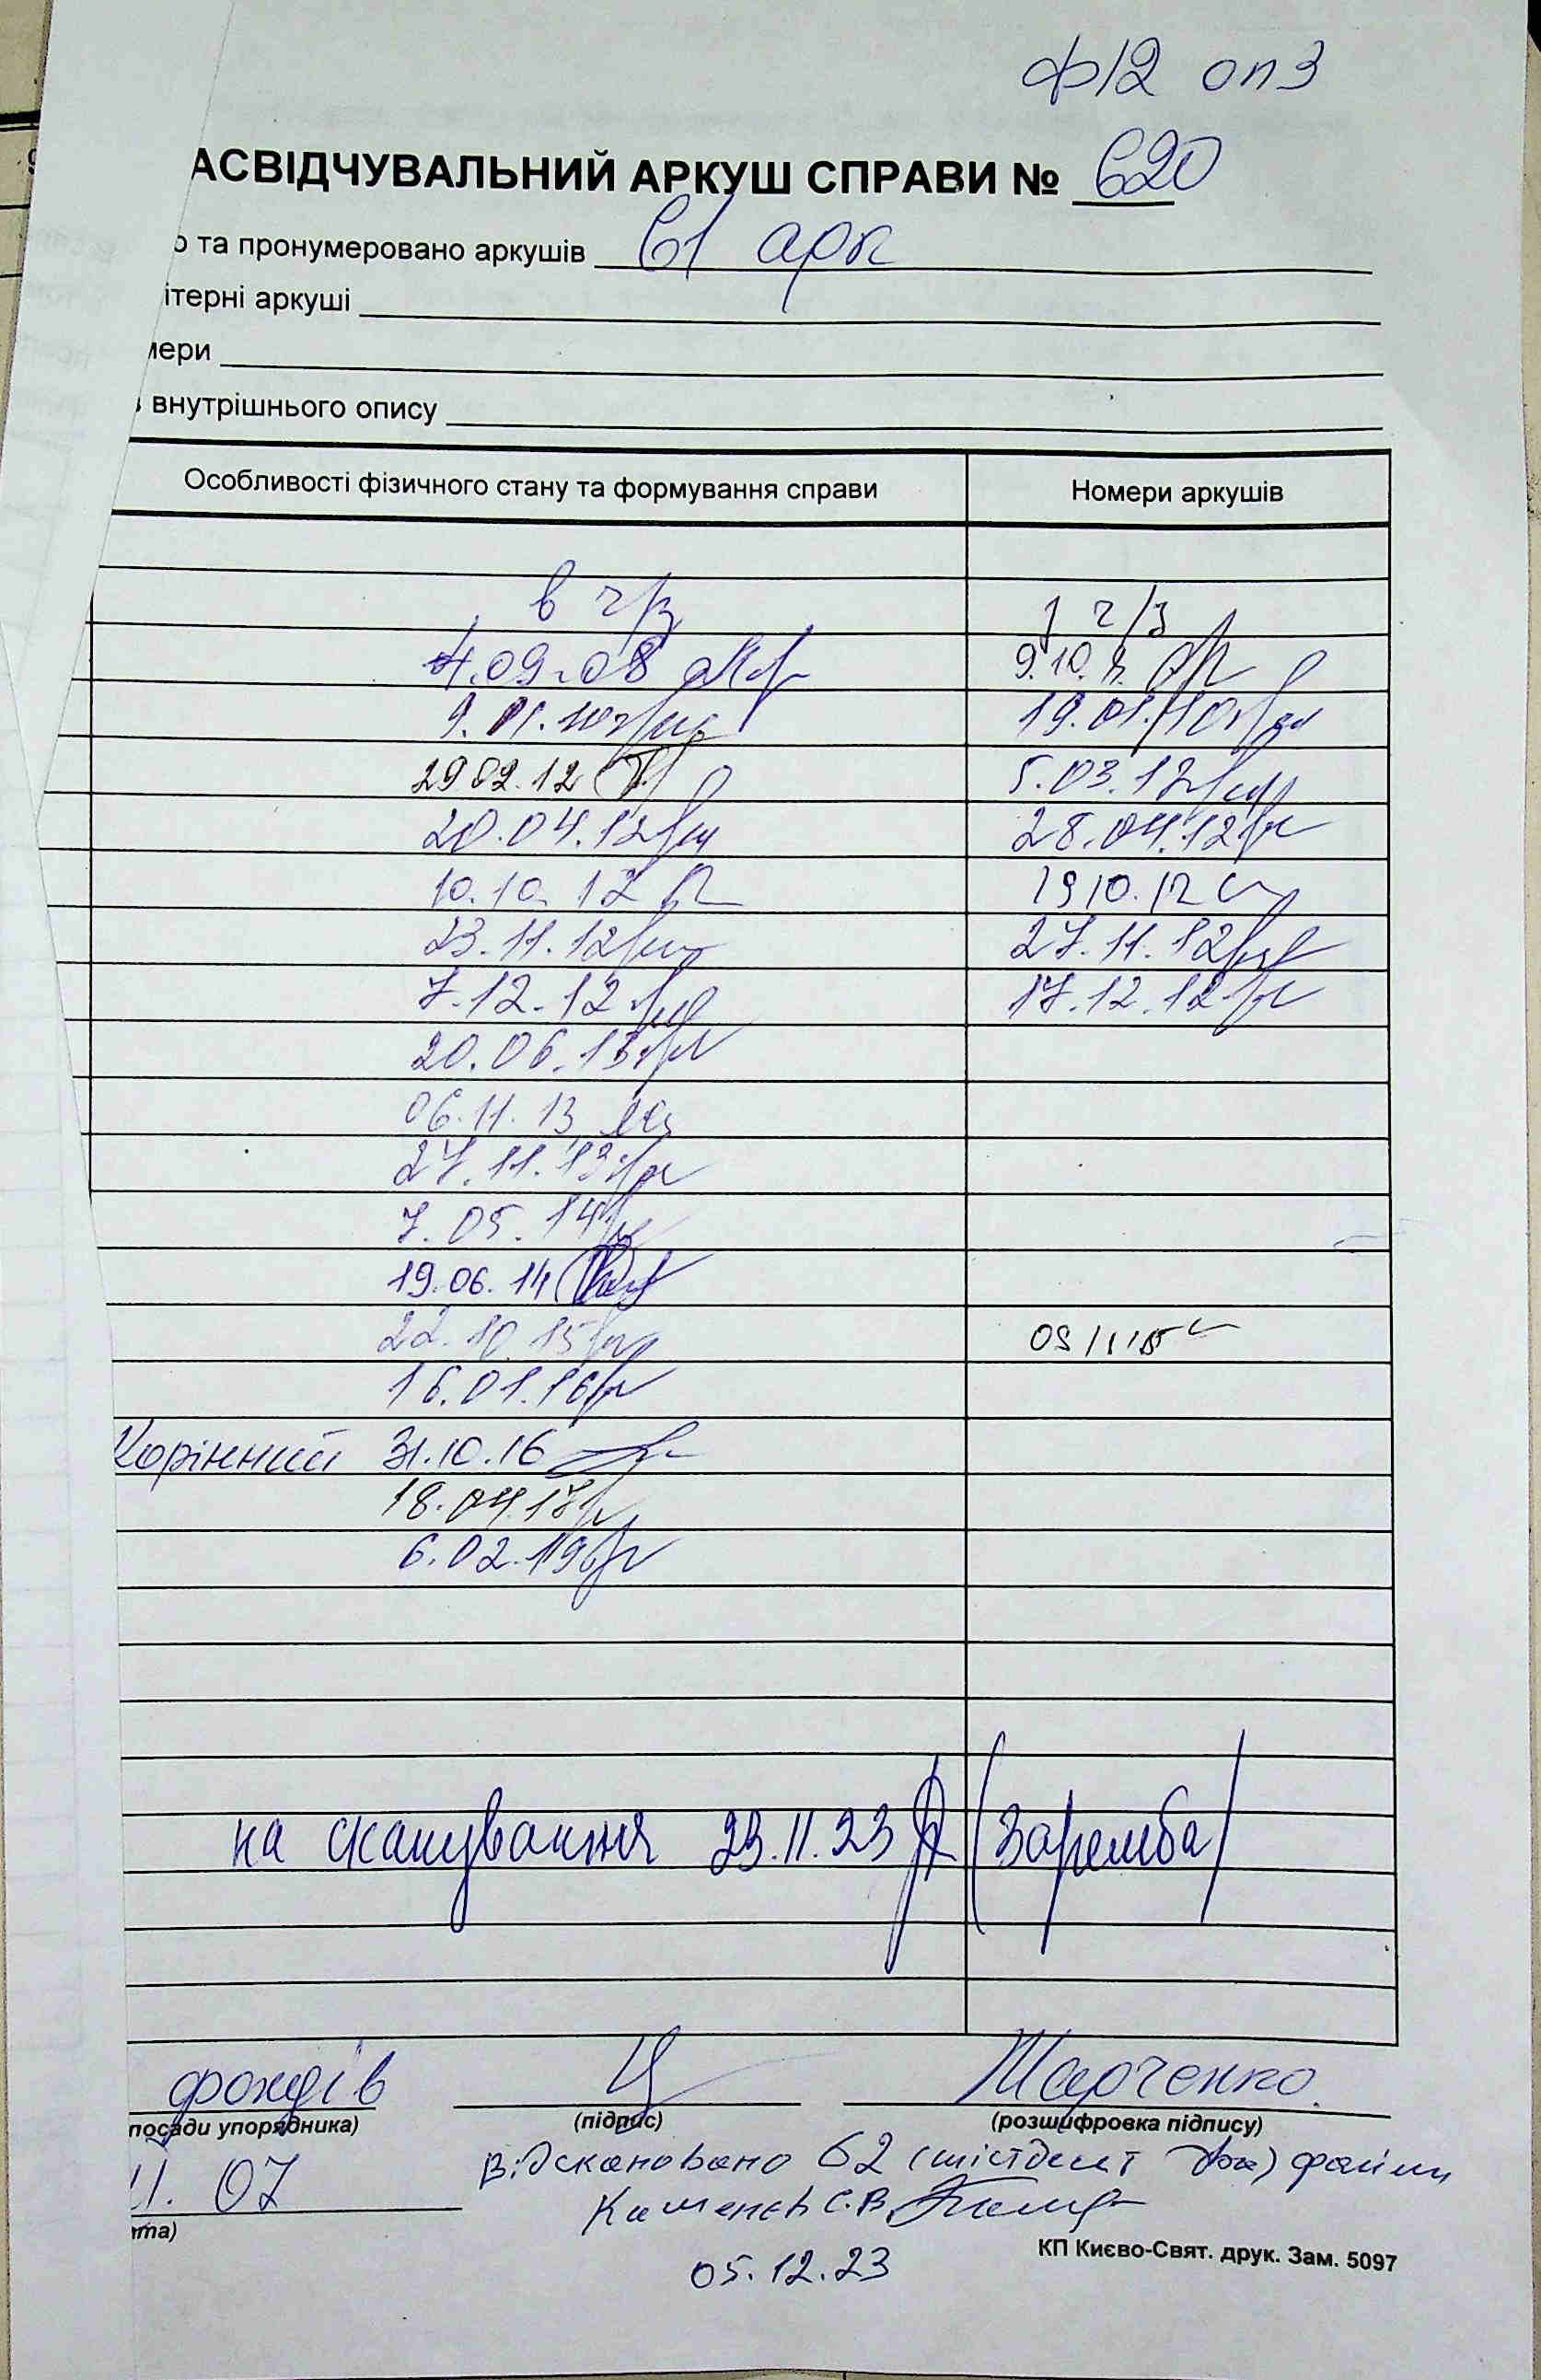 ф12 оп3
АСВІДЧУВАЛЬНИЙ АРКУШ СПРАВИ № 620
о та пронумеровано аркушів 61 арк
ітерні аркуші
мери
внутрішнього опису
Особливості фізичного стану та формування справи Номери аркушів
в ч/з 1 ч/з
4.09.08 9.10.
9.11.10 19.01.10
29 02.12 5.03.12
20.04.12 28.04.12
10.10.12 19 10.12
23.11.12 27.11.12
7.12.12 17.12.12
20.06.13
06.11.13
27.11.13
7.05.14
19.06.14
22.10.15 09/11/15
16.01.16
Корінний 31.10.16
18.04.18
6.02.19
на сканування 29.11.23 (Заремба)
фондів
посади упорядника) (підпис) (розшифровка підпису)
11.07
Відскановано 62 (шістдесят два) файли
Каменєв С.В.
та)
05.12.23
КП Києво-Свят. друк. Зам. 5097